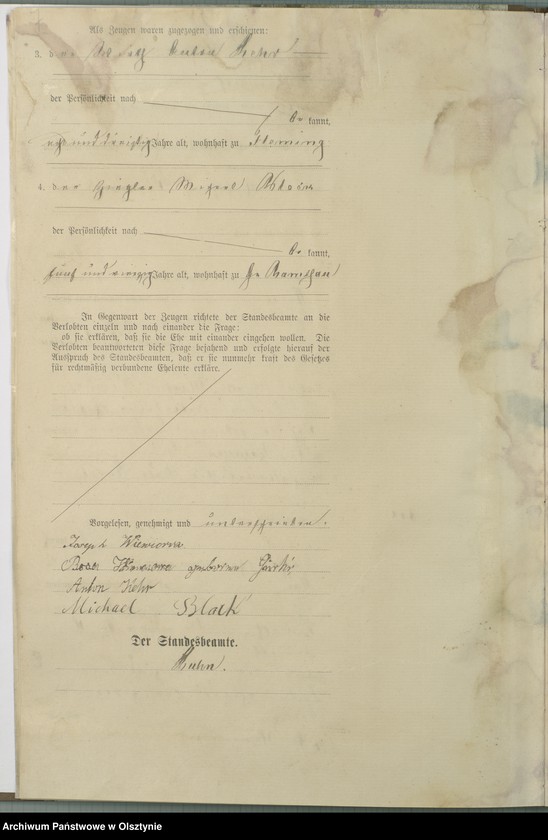 Als Zeugen waren zugezogen und erschienen:
3. der Anton
der Persönlichkeit nach
kannt,
acht und dreißig Jahre alt, wohnhaft zu Fleming
4. der Michael Block
der Persönlichkeit nach
kannt,
fünf und vierzig Jahre alt, wohnhaft zu Gr Ramsau
In Gegenwart der Zeugen richtete der Standesbeamte an die
Verlobten einzeln und nach einander die Frage:
ob sie erklären, daß sie die Ehe mit einander eingehen wollen. Die
Verlobten beantworteten diese Frage bejahend und erfolgte hierauf der
Ausspruch des Standesbeamten, daß er sie nunmehr kraft des Gesetzes
für rechtmäßig verbundene Eheleute erkläre.
Vorgelesen, genehmigt und unterschrieben.
Joseph
geborene
Anton
Michael Block
Der Standesbeamte.
Archiwum Państwowe w Olsztynie